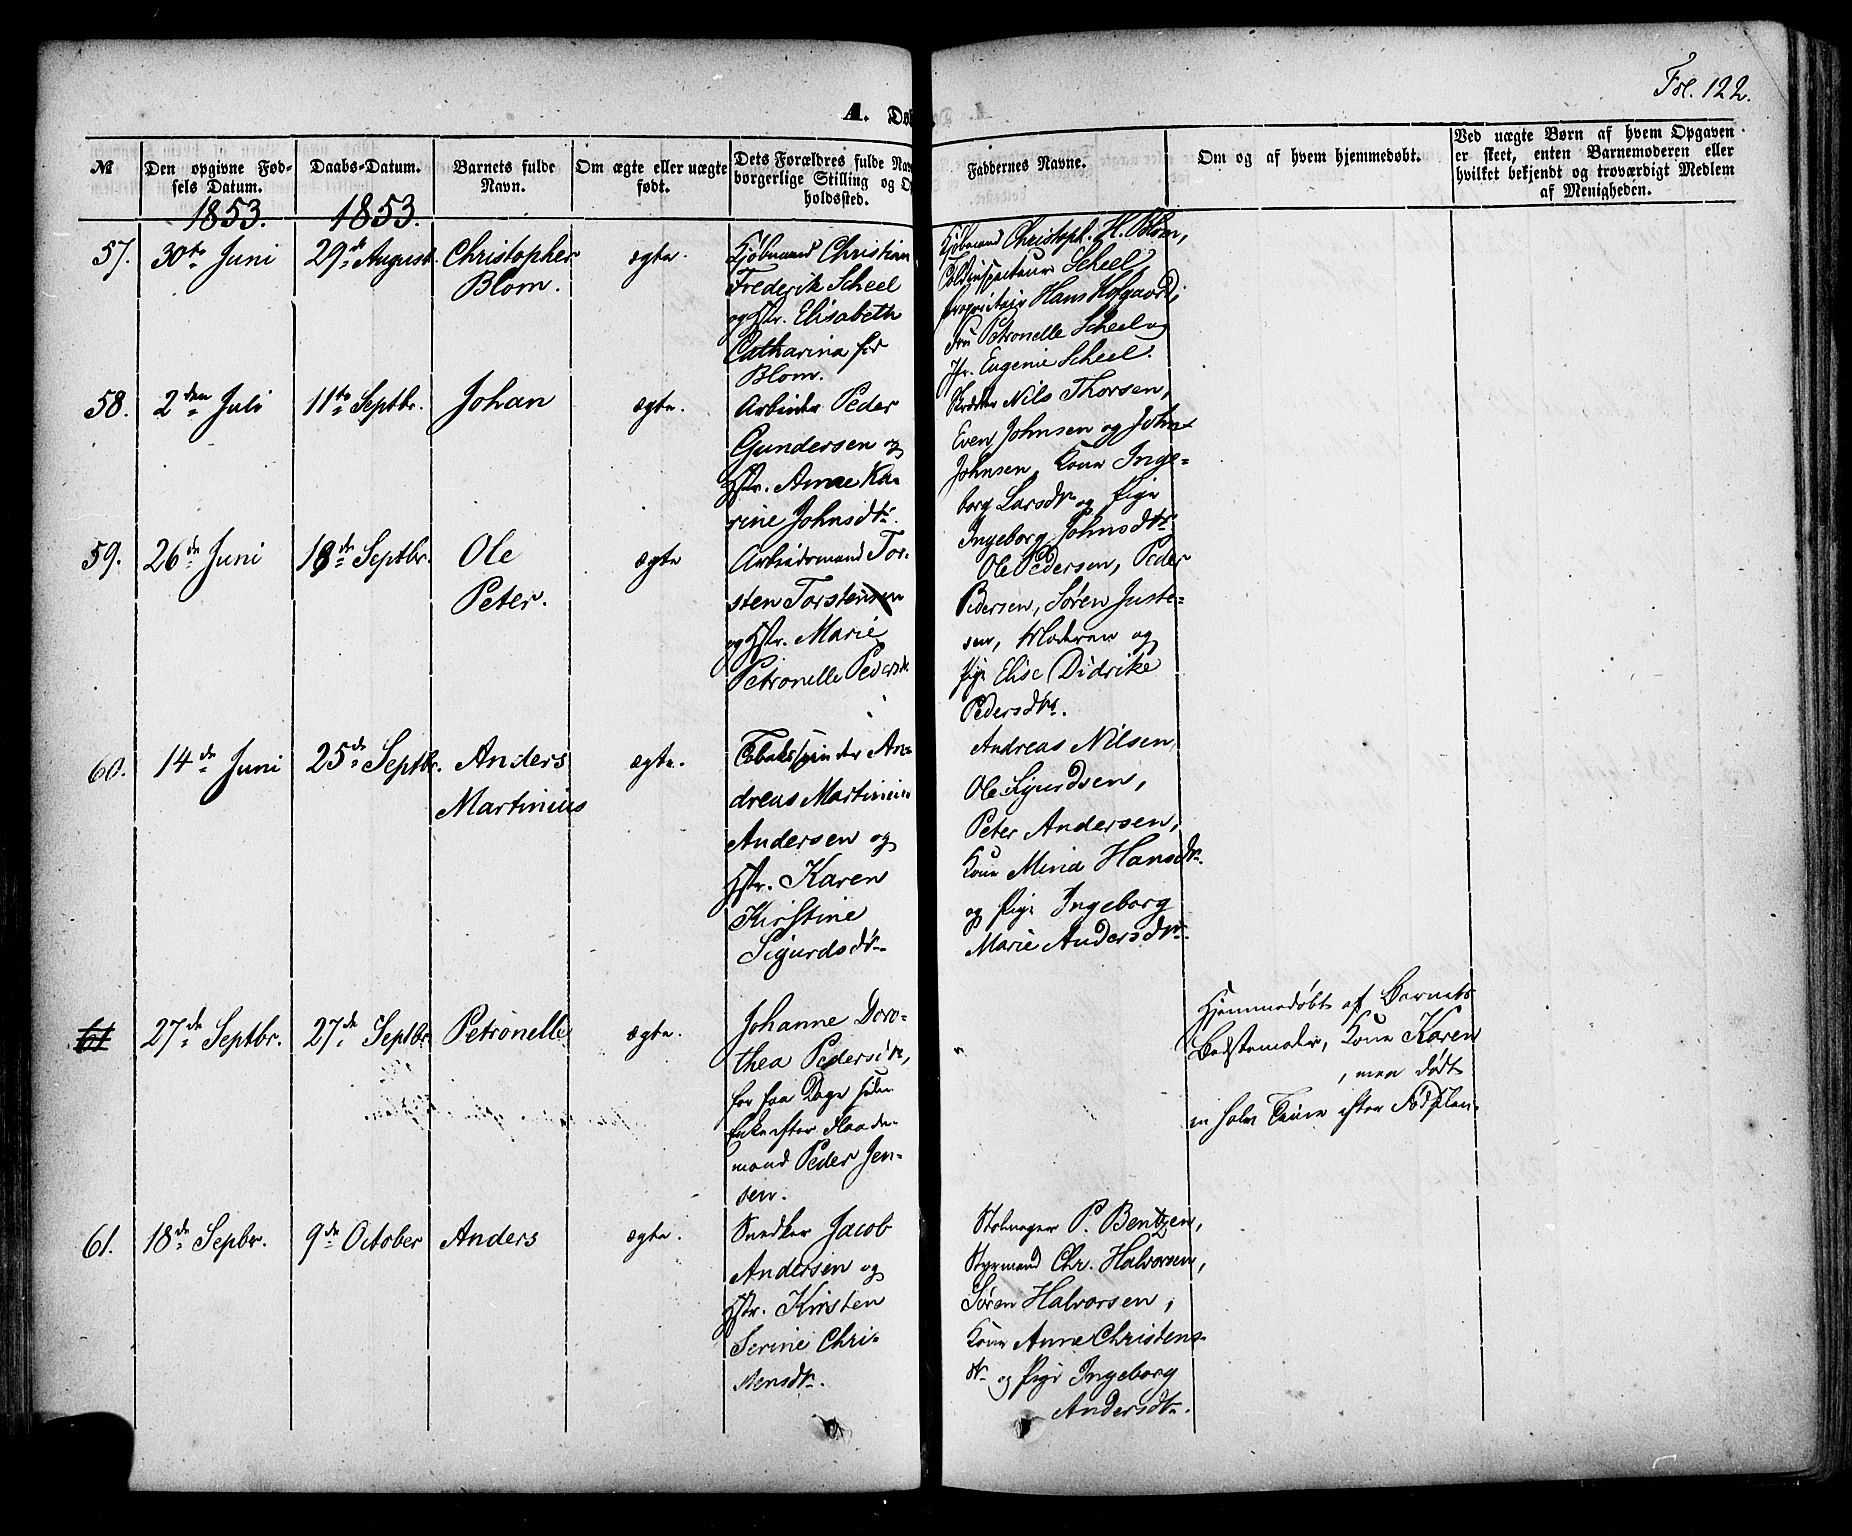 Fol. 122.
A. Dø
№
Den opgivne Fød-
sels Datum.
Daabs-Datum.
Barnets fulde
Navn.
Om ægte eller uægte
født.
Dets Forældres fulde Nav
borgerlige Stilling og O
holdssted.
Faddernes Navne.
Om og af hvem hjemmedøbt.
Ved uægte Børn af hvem Opgaven
er skeet, enten Barnemoderen eller
hvilket bekjendt og troværdigt Medlem
af Menigheden.
1853.
1853.
57.
30te Juni
29de August
Christopher
Blom.
ægte.
Kjøbmand Christian
Frederik Scheel
og Hstr. Elisabeth
Catharina før
Blom.
Kjøbmand Christoph. H. Blom,
Toldinspecteur Scheel
Proprietair Hans Hofgaard,
Fru Petronelle Scheel og
Jfr. Eugenie Scheel.
58.
2den Juli
11te Septbr.
Johan
ægte.
Arbeider Peder
Gundersen og
Hstr. Anne Ka-
rine Johnsdtr.
Skrædder Nils Thorsen,
Even Johnsen og John
Johnsen, Kone Inge-
borg Larsdtr og Pige
Ingeborg Johnsdtr
59.
26de Juni
18de Septbr.
Ole
Peter.
ægte
Arbeidsmand Tor-
sten Torstensen
og Hstr. Marie
Petronelle Pedersdtr
Ole Pedersen, Peder
Pedersen, Søren Juste-
sen, Moderen og
Pige Elise Didrike
Pedersdtr.
60.
14de Juni
25de Septbr.
Anders
Martinius
ægte.
Tobaksspinder An-
dreas Martinius
Andersen og
Hstr. Karen
Kirstine
Sigurdsdtr
Andreas Nilsen,
Ole Sigurdsen,
Peter Andersen,
Kone Mina Hansdtr
og Pige Ingeborg
Marie Andersdtr
61
27de Septbr.
27de Septbr
Petronelle
ægte.
Johanne Doro-
thea Pedersdtr,
for faa Dage siden
Enke efter
mand Peder Jen-
sen.
Hjemmedøbt af Barnets
Bedstemoder, Kone Karen
, men død
en halv Time efter Fødslen.
61.
18de Sepbr.
9de October
Anders
ægte.
Snedker Jacob
Andersen og
Hstr. Kirsten
Serine Chri-
stensdtr.
Stolmager P. Bentzen,
Styrmand Chr. Halvorsen,
Søren Halvorsen,
Kone Anne Christens-
dtr og Pige Ingeborg
Andersdtr.